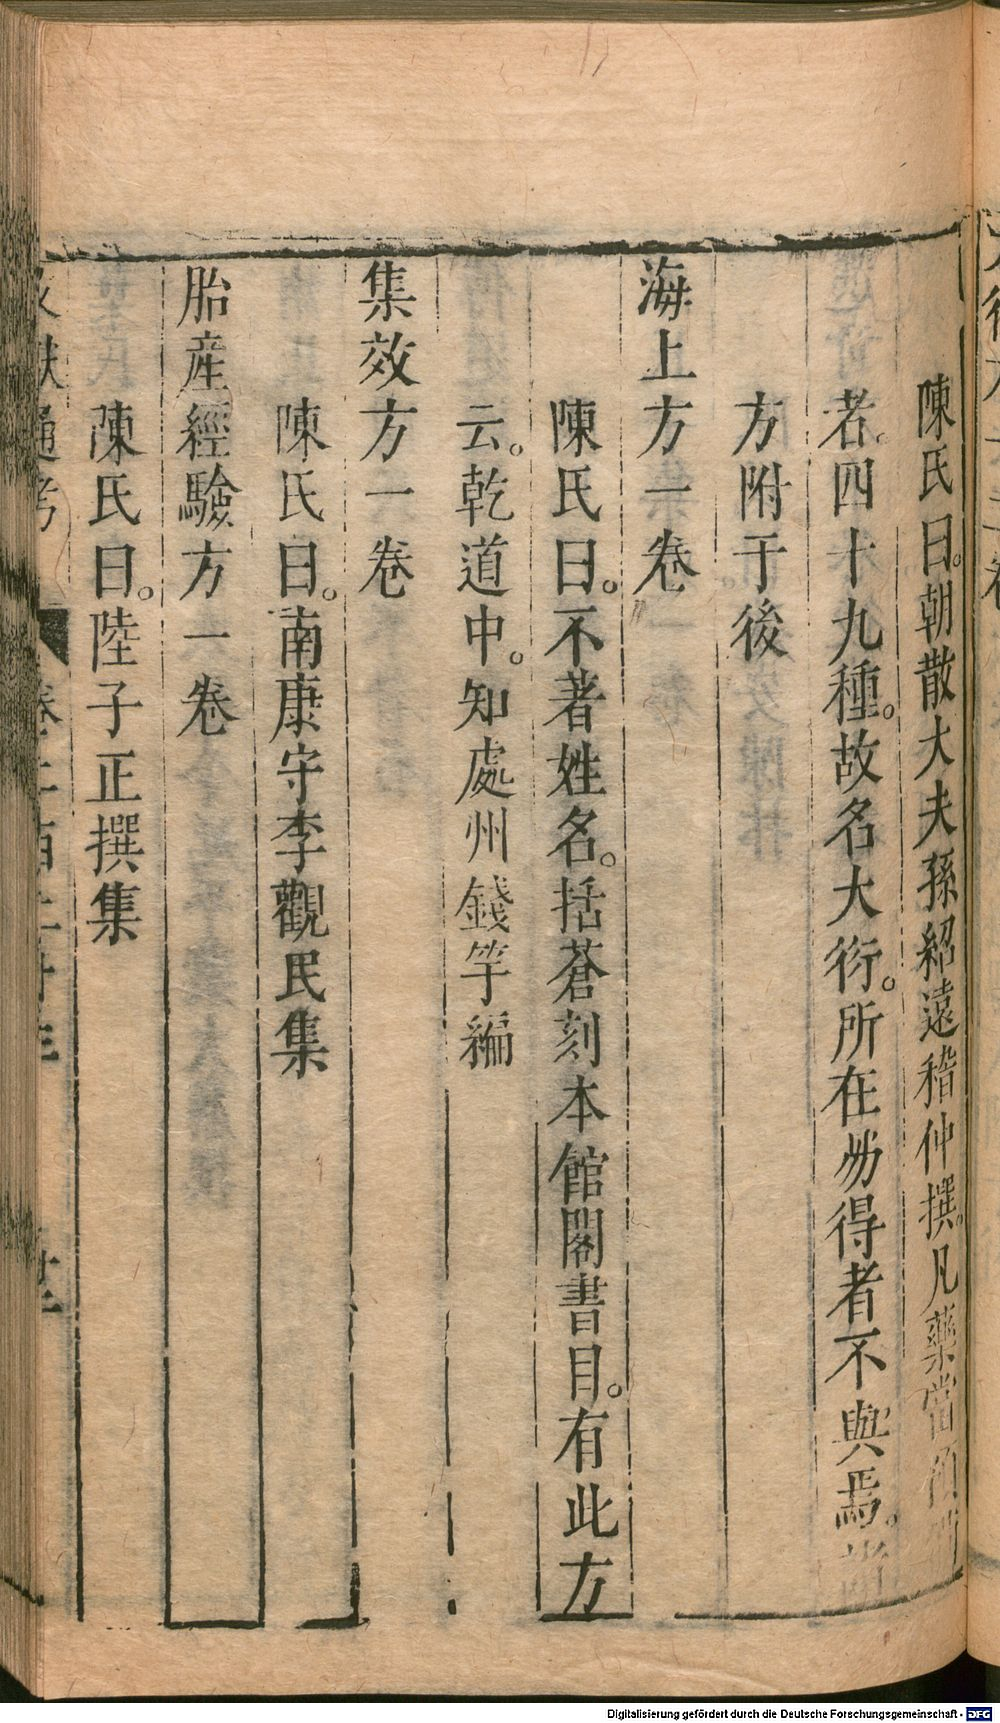 陳氏曰。朝散大夫孫紹遠稽仲撰。凡藥當預
者。四十九種。故名大衍。所在易得者不與焉。
方附于後
海上方一卷
陳氏曰。不著姓名。括蒼刻本館閣書目。有此方
云。乾道中。知處州錢竽編
集效方一卷
陳氏曰。南康守李觀民集
胎產經驗方一卷
陳氏曰。陸子正撰集
獻通考
Digitalisierung gefördert durch die Deutsche Forschungsgemeinschaft - DFG